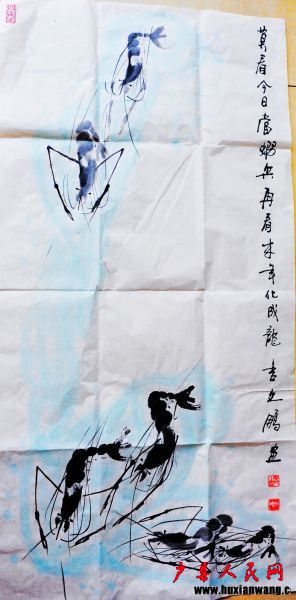 莫看今日當蝦兵再看来年化成龍 李 鵬画
户县人民网
www.huxianwang.c